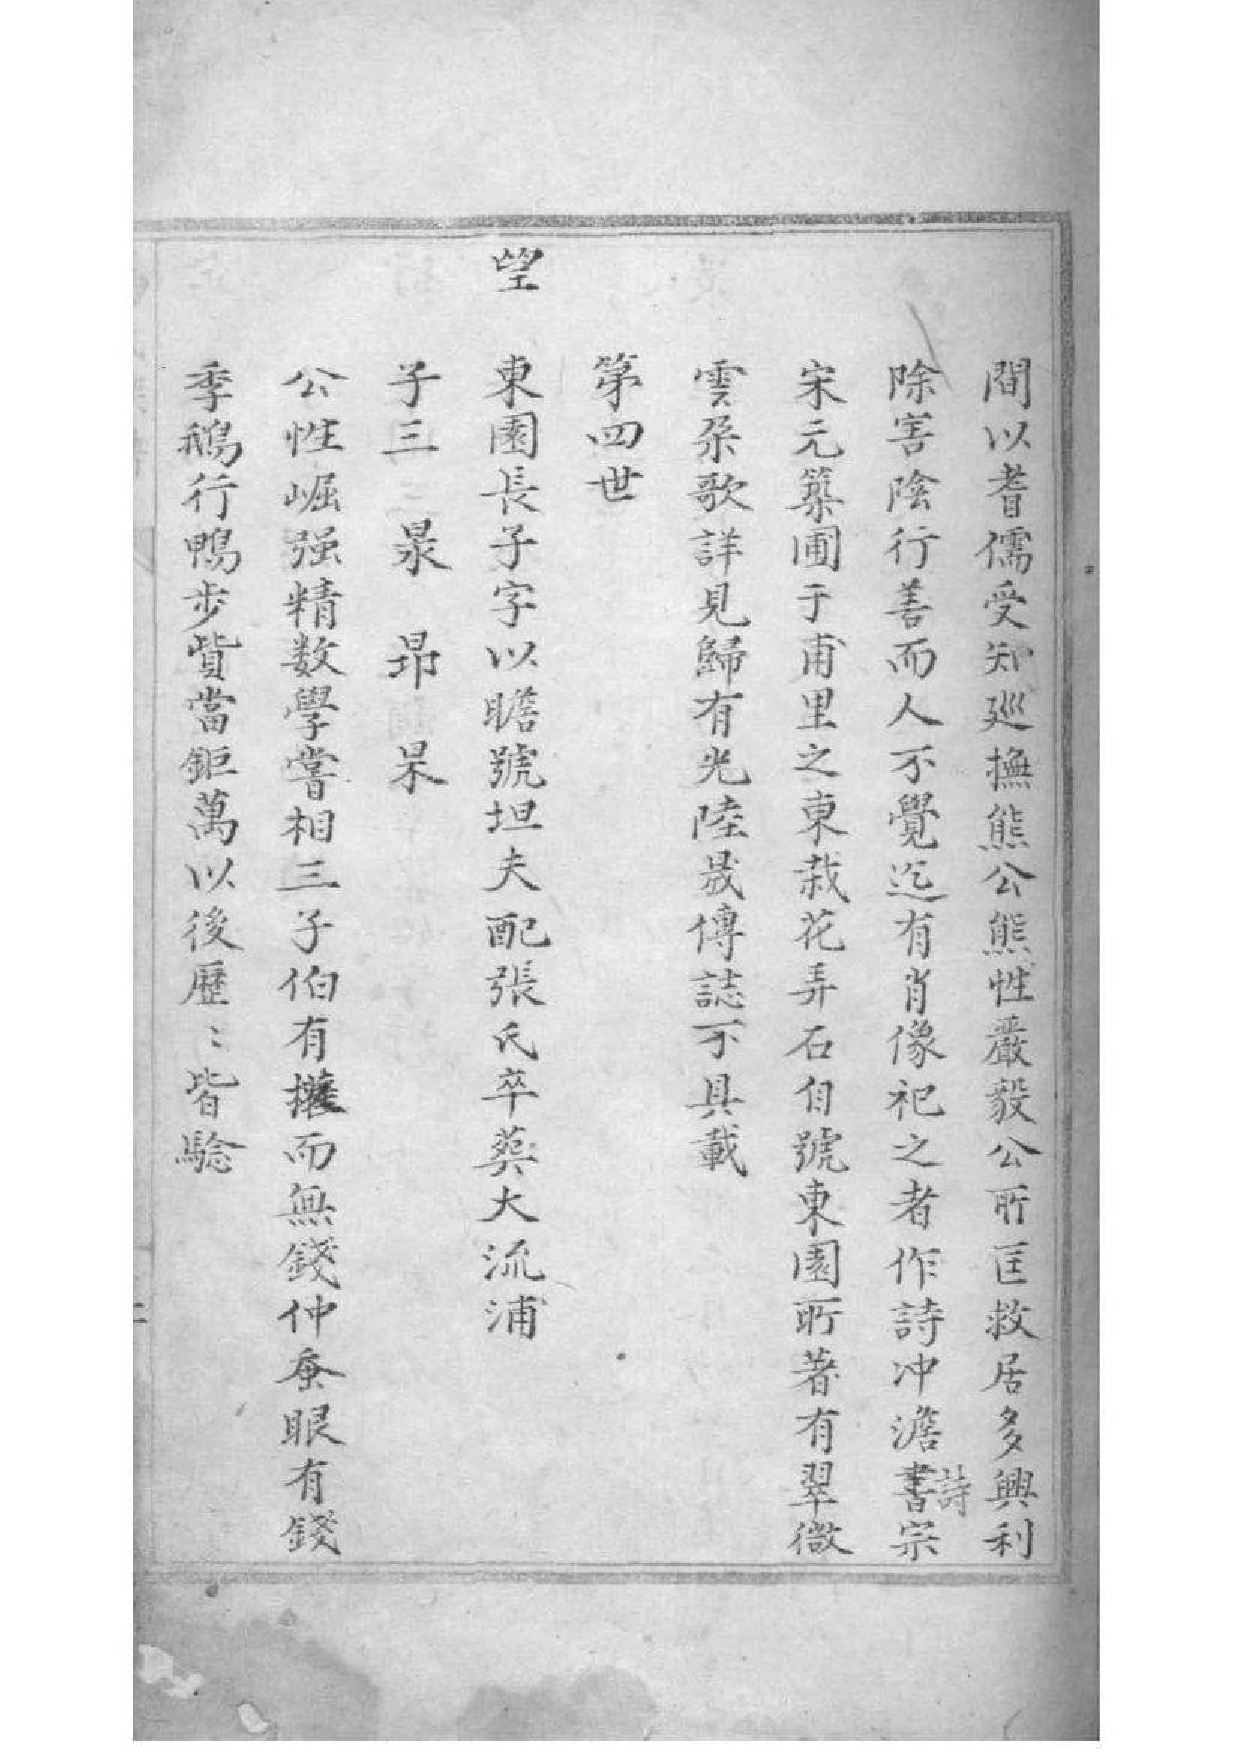 間以耆儒受知廵撫熊公熊性嚴毅公所匡救居多興利
除害陰行善而人不覺迄有肖像祀之者作詩冲澹書宗
詩
宋元築圃于甫里之東栽花弄石自號東園所著有翠微
雲朶歌詳見歸有光陸晟傳誌不具載
第四世
望
東園長子字以瞻號坦夫配張氏卒葬大流浦
子三 昹 昻 杲
公性崛强精数學嘗相三子伯有權而無錢仲蚕眼有錢
季鵝行鴨步貲當鉅萬以後歷〻皆驗